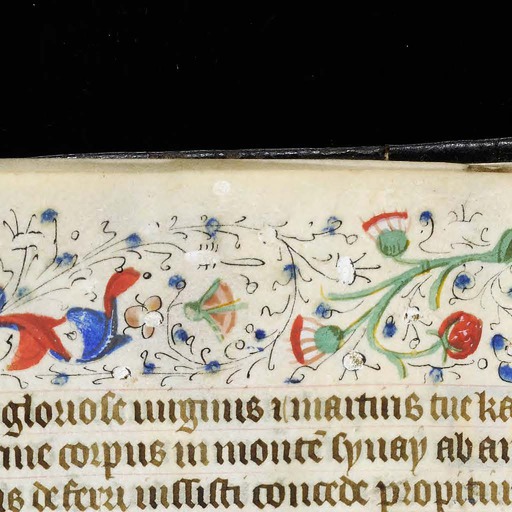 gloriose uirginis ⁊ martiris tue ka
ine corpus in monte᷑ synay ab an
is deferri iussisti concede propitiu